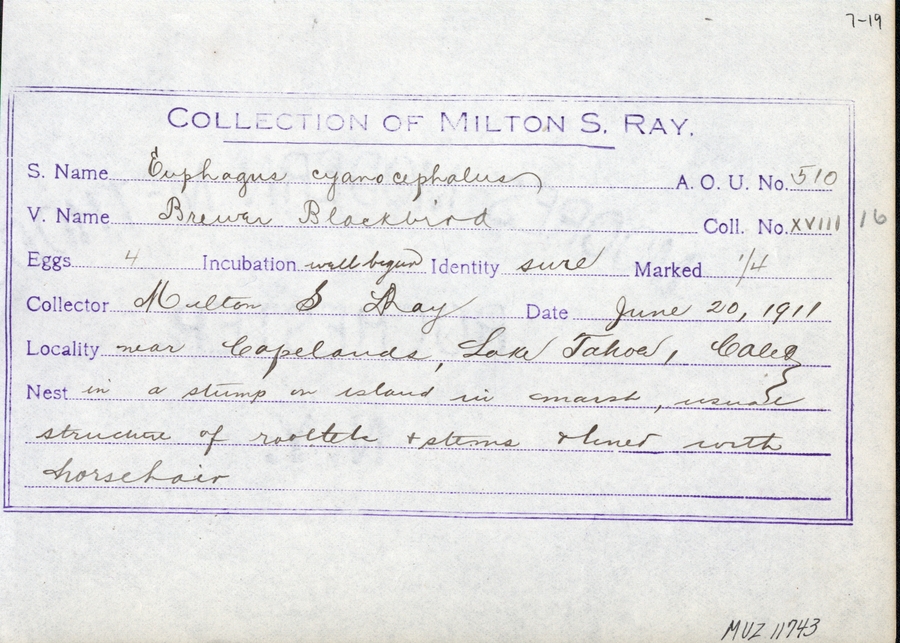 7-19
COLLECTION OF MILTON S. RAY.
S. Name Euphagus cyanocephalus A. O. U. No. 510
V. Name Brewer Blackbird Coll. No. XVIII 16
Eggs 4 Incubation well begun Identity sure Marked 1/4
Collector Milton S Ray Date June 20, 1911
Locality near Copelands, Lake Tahoe, Calif
Nest in a stump on island in marsh, usual
structure of rootlets & stems & lined with
horsehair
MVZ 11743